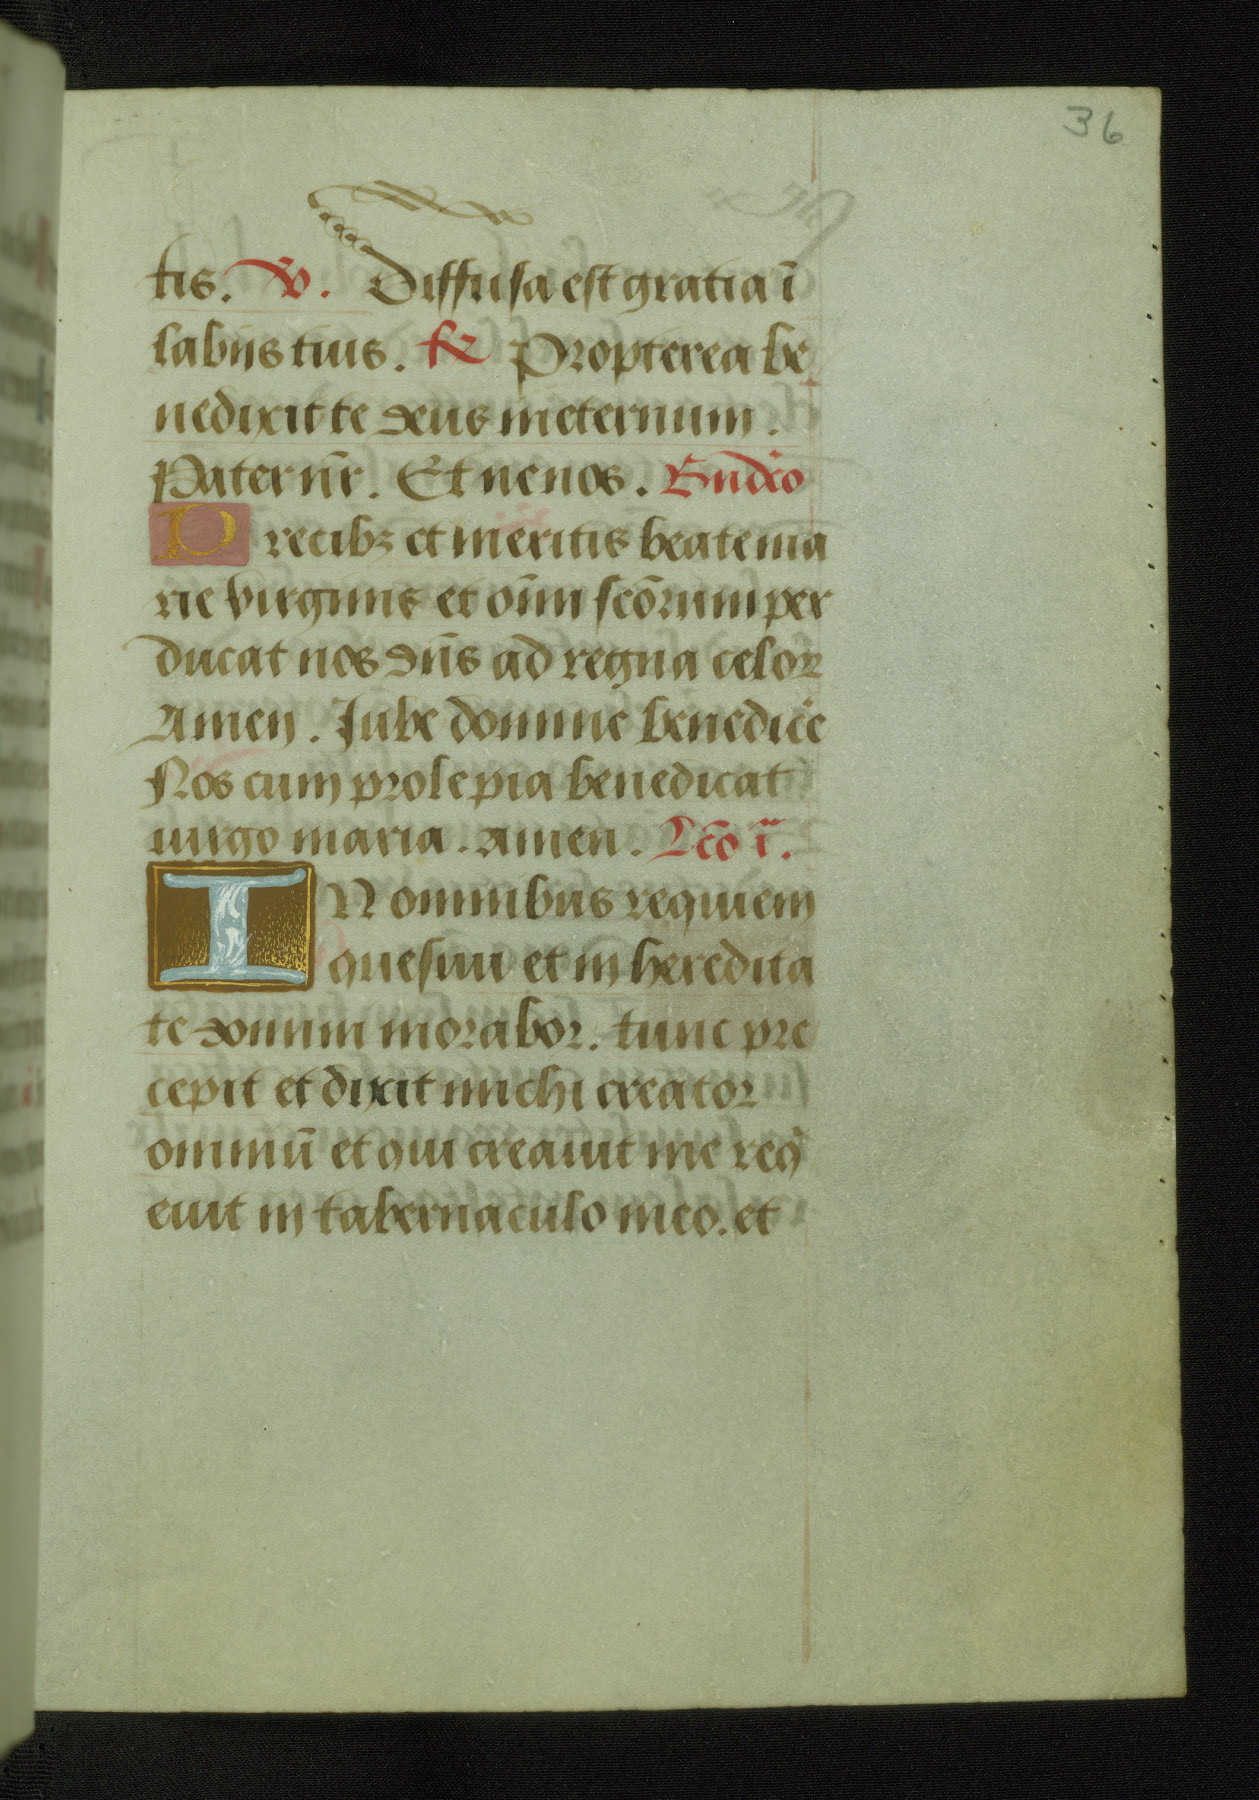 36
tis. v. Diffusa est gratia ī
labijs tuis. R Propterea be
nedixit te deus in eternum.
Pater nr̄. Et ne nos. Bn̄dc̄o
Precibꝫ et meritis beate ma
rie virginis et om̄m sc̄orum per
ducat nos dn̄s ad regna celoꝝ
Amen. Iube domine benedic̄e
Nos cum prole pia benedicat
uirgo maria. amen. Lc̄o ia.
IN omnibus requiem
quesiui et in heredita
te domini morabor. tunc pre
cepit et dixit michi creator
omniū et qui creauit me req̇
euit in tabernaculo meo. et